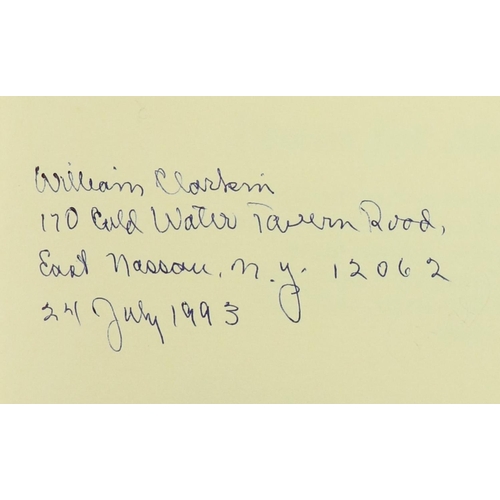 William Clarkin
170 Cold Water Tavern Road,
East Nassau, N.Y. 12062
24 July 1993